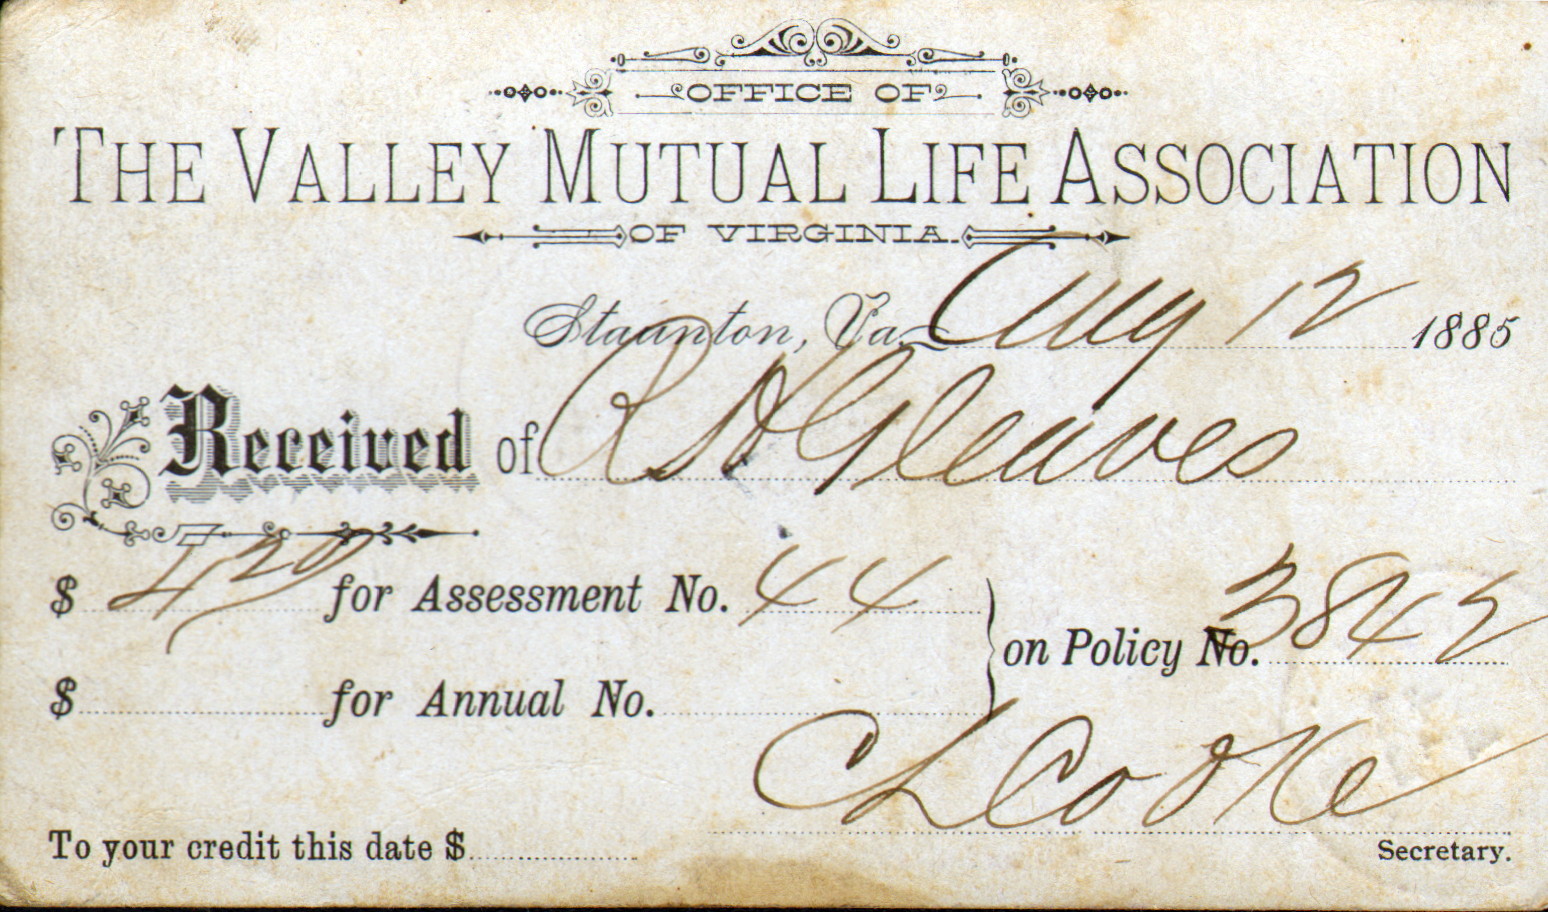 OFFICE OF
THE VALLEY MUTUAL LIFE ASSOCIATION
OF VIRGINIA.
Staunton, Va. Aug 12 1885
Received of R H Gleaves
$ 4 20 for Assessment No. 44
on Policy No. 3842
$ for Annual No.
C L Cooke
To your credit this date $ Secretary.